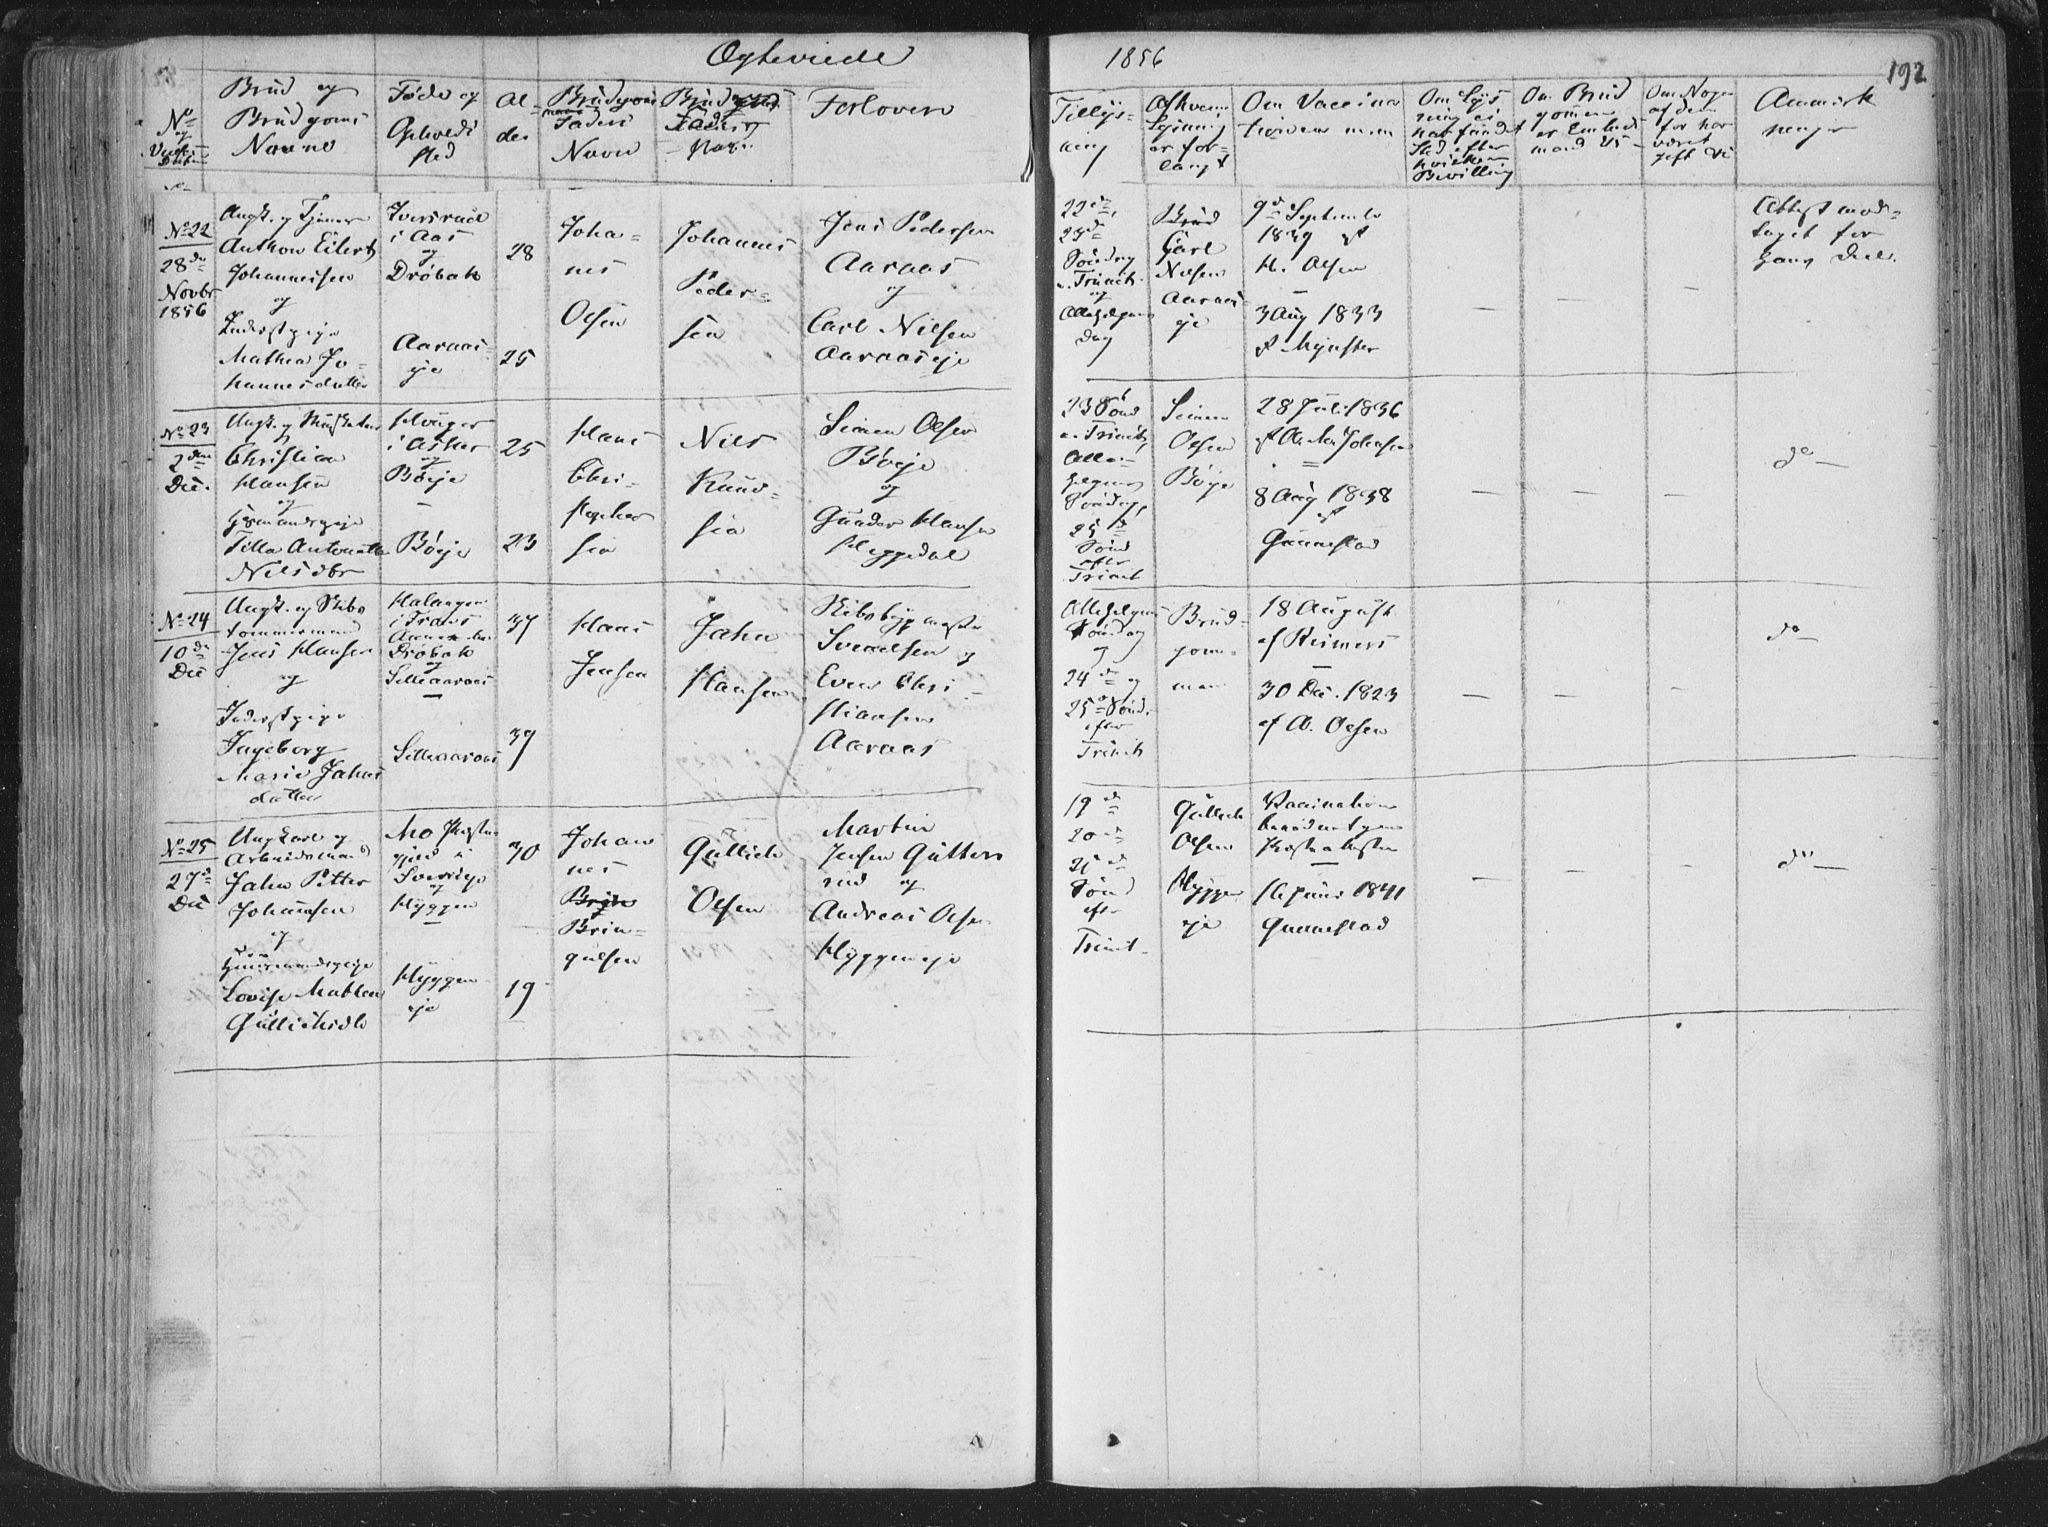 Ogteviede
1856
192
No
og
Brud og
Brudgoms
Navne
Føde og
Opholds
sted
Al-
der
Brudgom
mens
Faders
Navn
Brudens
Faders
Navn
Forlovere
Tillys-
ning
Om Vaccina
tionens
Om Lys
ning ei
har fundet
Sted efter
hvilken
Bevilling
Om Brud
gommen
er Embeds
mand
Om Nogen
af dem
før har
været
gift
Anmærk
ninger
No 22
28de
Novbr
1856
Ungk. og Tjener
Anthon Eilert
Johannesen
og
Inderst pige
Mathea Jo-
hannesdatter
Iversrud
i Aas
og
Drøbak
Aaraas-
eje
28
25
Joha-
nes
Olsen
Johannes
Peder-
sen
Jens Pedersen
Aaraas
og
Carl Nilsen
Aaraaseje
22de
23de
Søndag
e. Trinit.
og
Allehelgens
dag
Brud
Carl
Nilsen
Aaraas-
eje
9de Septembr
1839 af
H. Olsen
3 Aug 1833
af Mynster
Attest mod-
taget for
hans Deel.
No 23
2den
Dec.
Christian
Hansen
og
Gjsmandspige
Tilla Antonette
Nilsdtr
i Asker
og
Bøeje
Bøeje
25
23
Hans
Chri-
stopher
sen
Nils
Knud-
sen
Simen Olsen
Bøeje
og
Gunder Hansen
Heggedal
23 Sønd
e. Trinit,
Alle-
helgens
Søndag,
25de
Sønd
efter
Trinit
Simen
Olsen
Bøeje
28 Juli 1836
8 Aug 1838
af
Gunnestad
do
No 24
10de
Dec
Ungk. og Skibs
tømmermand
Jens Hansen
og
Inderst pige
Ingeborg
Marie Jahns
datter
Drøbak
og
Lilleaaraas
Lilleaaraas
37
39
Hans
Jensen
Jahn
Hansen
Skibsbygmester
Svendsen og
Even Chri
stiansen
Aaraas
Allehelgens
Søndag
og
24de og
25de Sønd.
efter
Trinit
Brud-
gom-
men
18 August
af Reimers
30 Dec. 1823
af A. Olsen
do
No 25
27de
Dec
Ungkarl og
Arbeidsmand
Jahn Petter
Johansen
og
Huusmandspige
Lovise Mathea
Gullichsdtr
Mo Præste
gjeld i
Sverige
og
Hyggen
Hyggen
eje
30
19
Johan
nes
Bryn-
gulsen
Gullich
Olsen
Martin
Jensen Gutters
rud og
Andreas Olsen
Hyggeneje
19de
20de
21de
Sønd
efter
Trinit.
Gullich
Olsen
Hyggen
eje
Vaccination
16 Juni 1841
Gunnestad
do